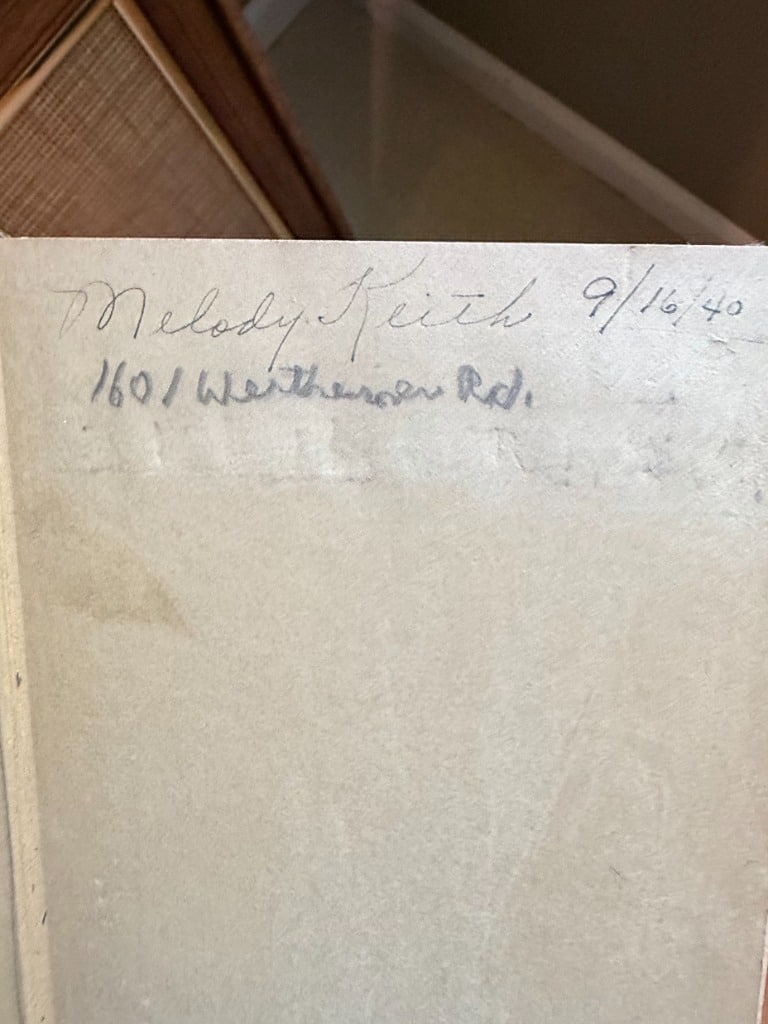 Melody Keith 9/16/40
1601 Rd.